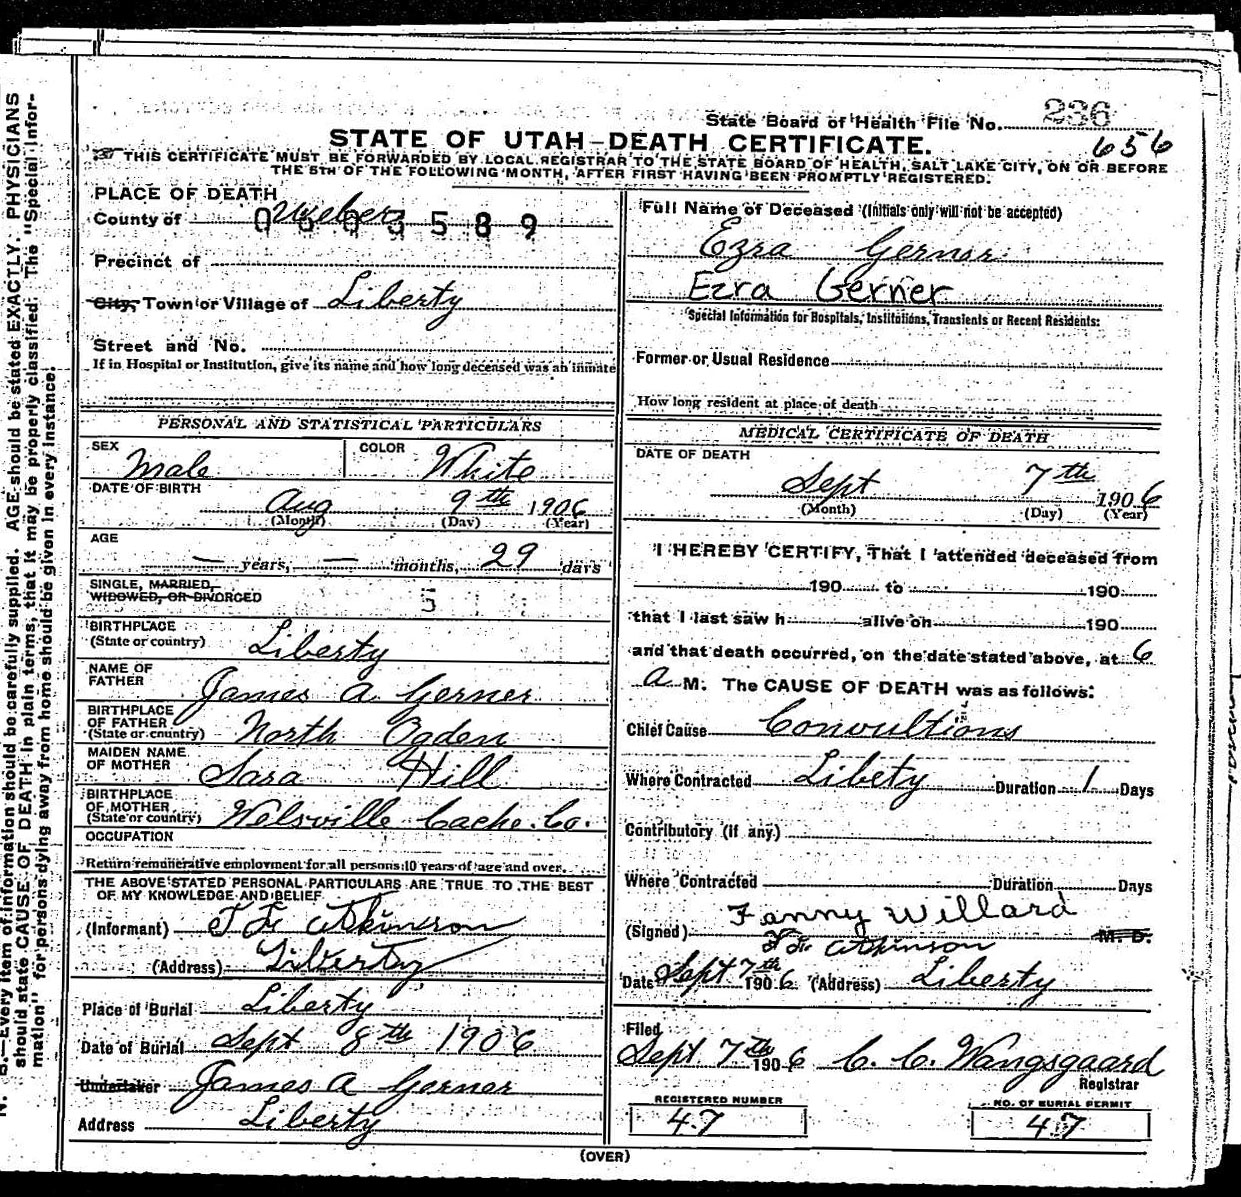 State Board of Health File No. 236
656
STATE OF UTAH-DEATH CERTIFICATE.
THIS CERTIFICATE MUST BE FORWARDED BY LOCAL REGISTRAR TO THE STATE BOARD OF HEALTH, SALT LAKE CITY, ON OR BEFORE
THE 5TH OF THE FOLLOWING MONTH, AFTER FIRST HAVING BEEN PROMPTLY REGISTERED.
PLACE OF DEATH
County of Weber
0603589
Precinct of
City, Town or Village of Liberty
Street and No.
If in Hospital or Institution, give its name and how long deceased was an inmate
Full Name of Deceased (Initials only will not be accepted)
Ezra Gerner
Ezra Gerner
Special Information for Hospitals, Institutions, Transients or Recent Residents:
Former or Usual Residence
How long resident at place of death
PERSONAL AND STATISTICAL PARTICULARS
SEX Male COLOR White
DATE OF BIRTH Aug 9th 1906
(Month) (Day) (Year)
AGE
years, months, 29 days
SINGLE, MARRIED,
WIDOWED, OR DIVORCED S
BIRTHPLACE
(State or country) Liberty
NAME OF
FATHER James A Gerner
BIRTHPLACE
OF FATHER
(State or country) North Ogden
MAIDEN NAME
OF MOTHER Sara Hill
BIRTHPLACE
OF MOTHER
(State or country) Welsville Cache. Co.
OCCUPATION
Return remunerative employment for all persons 10 years of age and over.
THE ABOVE STATED PERSONAL PARTICULARS ARE TRUE TO THE BEST
OF MY KNOWLEDGE AND BELIEF
(Informant) Atkinson
(Address) Liberty
Place of Burial Liberty
Date of Burial Sept 8th 1906
Undertaker James A Gerner
Address Liberty
MEDICAL CERTIFICATE OF DEATH
DATE OF DEATH
Sept 7th 1906
(Month) (Day) (Year)
I HEREBY CERTIFY, That I attended deceased from
190 to 190
that I last saw h alive on 190
and that death occurred, on the date stated above, at 6
a M. The CAUSE OF DEATH was as follows:
Chief Cause Convultions
Where Contracted Libety Duration 1 Days
Contributory (if any)
Where Contracted Duration Days
Fanny Willard
(Signed) Atkinson M. D.
Date Sept 7th 1906 (Address) Liberty
Filed
Sept 7th 1906 C. C. Wangsgaard
Registrar
REGISTERED NUMBER
47
NO. OF BURIAL PERMIT
47
(OVER)
N. B.—Every item of information should be carefully supplied. AGE should be stated EXACTLY. PHYSICIANS
should state CAUSE OF DEATH in plain terms, that it may be properly classified. The "Special Infor-
mation" for persons dying away from home should be given in every instance.